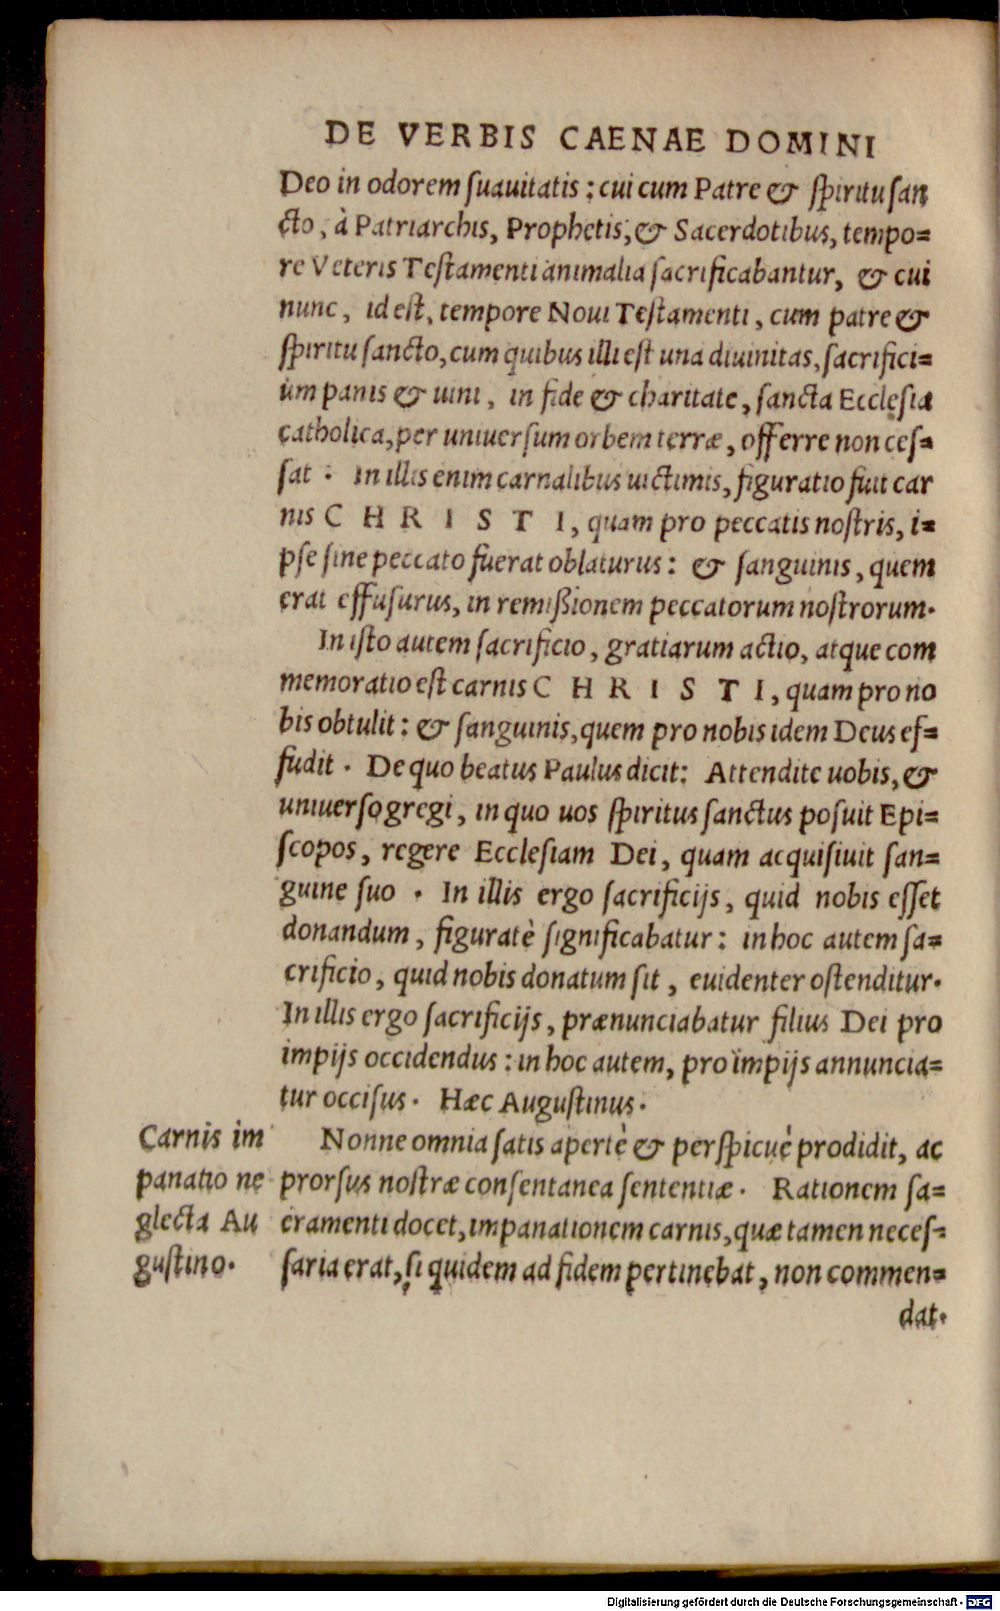 DE VERBIS CAENAE DOMINI
Deo in odorem suauitatis: cui cum Patre & spiritu san
cto, à Patriarchis, Prophetis, & Sacerdotibus, tempo=
re Veteris Testamenti animalia sacrificabantur, & cui
nunc, id est, tempore Noui Testamenti, cum patre &
spiritu sancto, cum quibus illi est una diuinitas, sacrifici=
um panis & uini, in fide & charitate, sancta Ecclesia
catholica, per uniuersum orbem terræ, offerre non ces=
sat. In illis enim carnalibus uictimis, figuratio fuit car
nis CHRISTI, quam pro peccatis nostris, i=
pse sine peccato fuerat oblaturus: & sanguinis, quem
erat effusurus, in remißionem peccatorum nostrorum.
In isto autem sacrificio, gratiarum actio, atque com
memoratio est carnis CHRISTI, quam pro no
bis obtulit: & sanguinis, quem pro nobis idem Deus ef=
fudit. De quo beatus Paulus dicit: Attendite uobis, &
uniuerso gregi, in quo uos spiritus sanctus posuit Epi=
scopos, regere Ecclesiam Dei, quam acquisiuit san=
guine suo. In illis ergo sacrificijs, quid nobis esset
donandum, figuratè significabatur: in hoc autem sa=
crificio, quid nobis donatum sit, euidenter ostenditur.
In illis ergo sacrificijs, prænunciabatur filius Dei pro
impijs occidendus: in hoc autem, pro impijs annuncia=
tur occisus. Hæc Augustinus.
Carnis im
panatio ne
glecta Au
gustino.
Nonne omnia satis apertè & perspicuè prodidit, ac
prorsus nostræ consentanea sententiæ. Rationem sa=
cramenti docet, impanationem carnis, quæ tamen neces=
saria erat, si quidem ad fidem pertinebat, non commen=
dat.
Digitalisierung gefördert durch die Deutsche Forschungsgemeinschaft - DFG